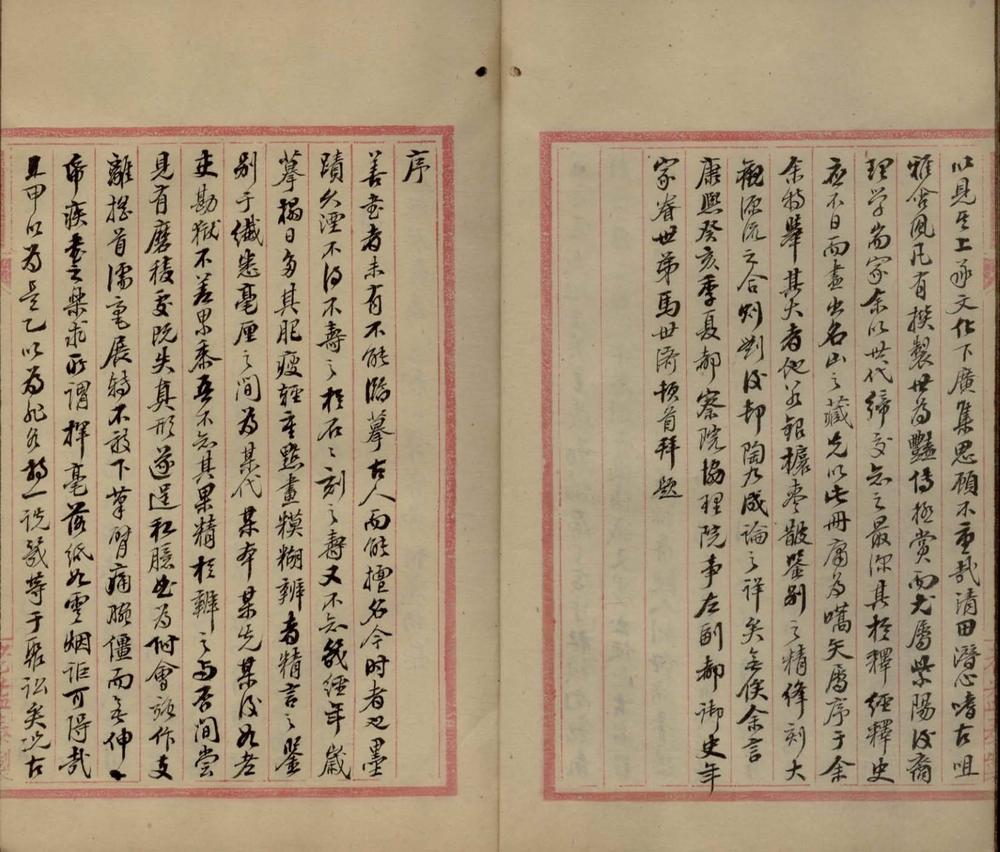 以見至上逐文化下廣集思顧不重哉清田潛心嗜古咀
雅含風凡有撰製世為豔傳極賞而尤屬紫陽後裔
理學嵩家余以世代締交知之最深其於釋經釋史
應不日而盡出名山之藏先以此冊庸為嚆矢屬序于余
余特舉其大者他若銀欐棗皸鑒別之精絳刻大
觀源流之合剖劃後却陶九成論之詳矣無俟余言
康熙癸亥季夏都察院協理院事左副都御史年
家眷世弟馬世濟頓首拜題
序
善書者未有不能臨摹古人而能擅名今時者也墨
蹟久湮不得不壽之於石石刻之壽又不知幾經年歲
摹搨日多其肥瘦輕重點畫糢糊辨者精言之鑒
別于纖悉毫厘之間為某代某本某先某後如老
吏勘獄不差累黍吾不知其果精於辨之與否間嘗
見有磨稜交阮失真形遂逞私臆出為附會詭作支
離搖首濡毫展轉不敢下筆臂痛腕僵而無伸
帝疾書之樂求所謂揮毫落紙如雲烟詎可得哉
且甲以為是乙以為非各持一說幾等于聚訟矣況古